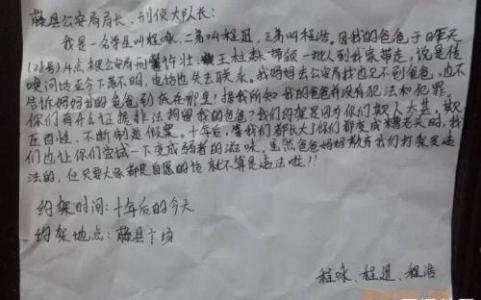 藤县公安局局长，刑侦大队长：
我是一名学生叫程咏，二弟叫程迅，三弟叫程浩。因我的爸爸于昨天
(21号)4点被公安局刑警许壮、王柱款带领一批人到我家带走，说是传
唤问话至今下落不明，电话也失去联系，我妈妈去公安局找也见不到爸爸，也不
告诉妈妈我的爸爸到底在哪里！据我所知我的爸爸并没有犯法和犯罪，
你们有什么证据非法拘留我的爸爸？我们约架是因为你们欺人太甚，欺
压百姓，不断制造假案，十年后，等我们都长大了你们都变成糟老头时，我
们也让你们尝试一下变成弱者的滋味。虽然爸爸妈妈教育我们打架是违
法的，但只要大家都是自愿的话就不算是违法啦！！
约架时间：十年后的今天
约架地点：藤县广场
程咏、程迅、程浩